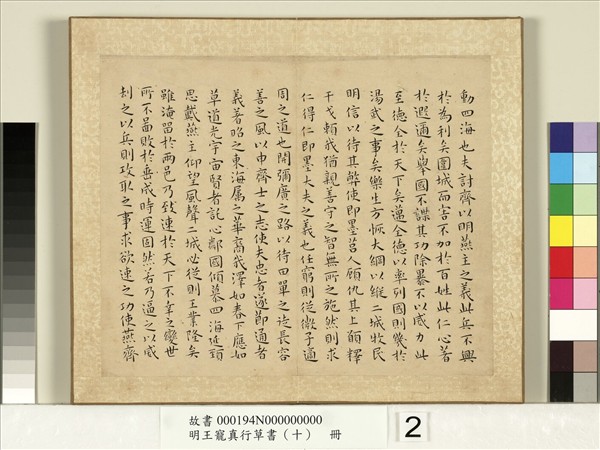 動四海也夫討齊以明燕主之義此兵不興
於為利矣圍城而害不加於百姓此仁心著
於遐邇矣舉國不謀其功除暴不以威力此
至德全於天下矣邁全德以率列國則幾於
湯武之事矣樂生方恢大綱以縱二城牧民
明信以待其弊使即墨莒人顧仇其上願釋
干戈賴我猶親善守之智無所之施然則求
仁得仁即墨大夫之義也任窮則從微子適
周之道也開彌廣之路以待田單之徒長容
善之風以申齊士之志使夫忠者遂節通者
義著昭之東海屬之華裔我澤如春下應如
草道光宇宙賢者託心鄰國傾慕四海延頸
思戴燕主仰望風聲二城必從則王業隆矣
雖淹留於兩邑乃致速於天下不幸之變世
所不圖敗於垂成時運固然若乃逼之以威
刦之以兵則攻取之事求欲速之功使燕齊
故書 000194N000000000
明王寵真行草書（十） 冊
2